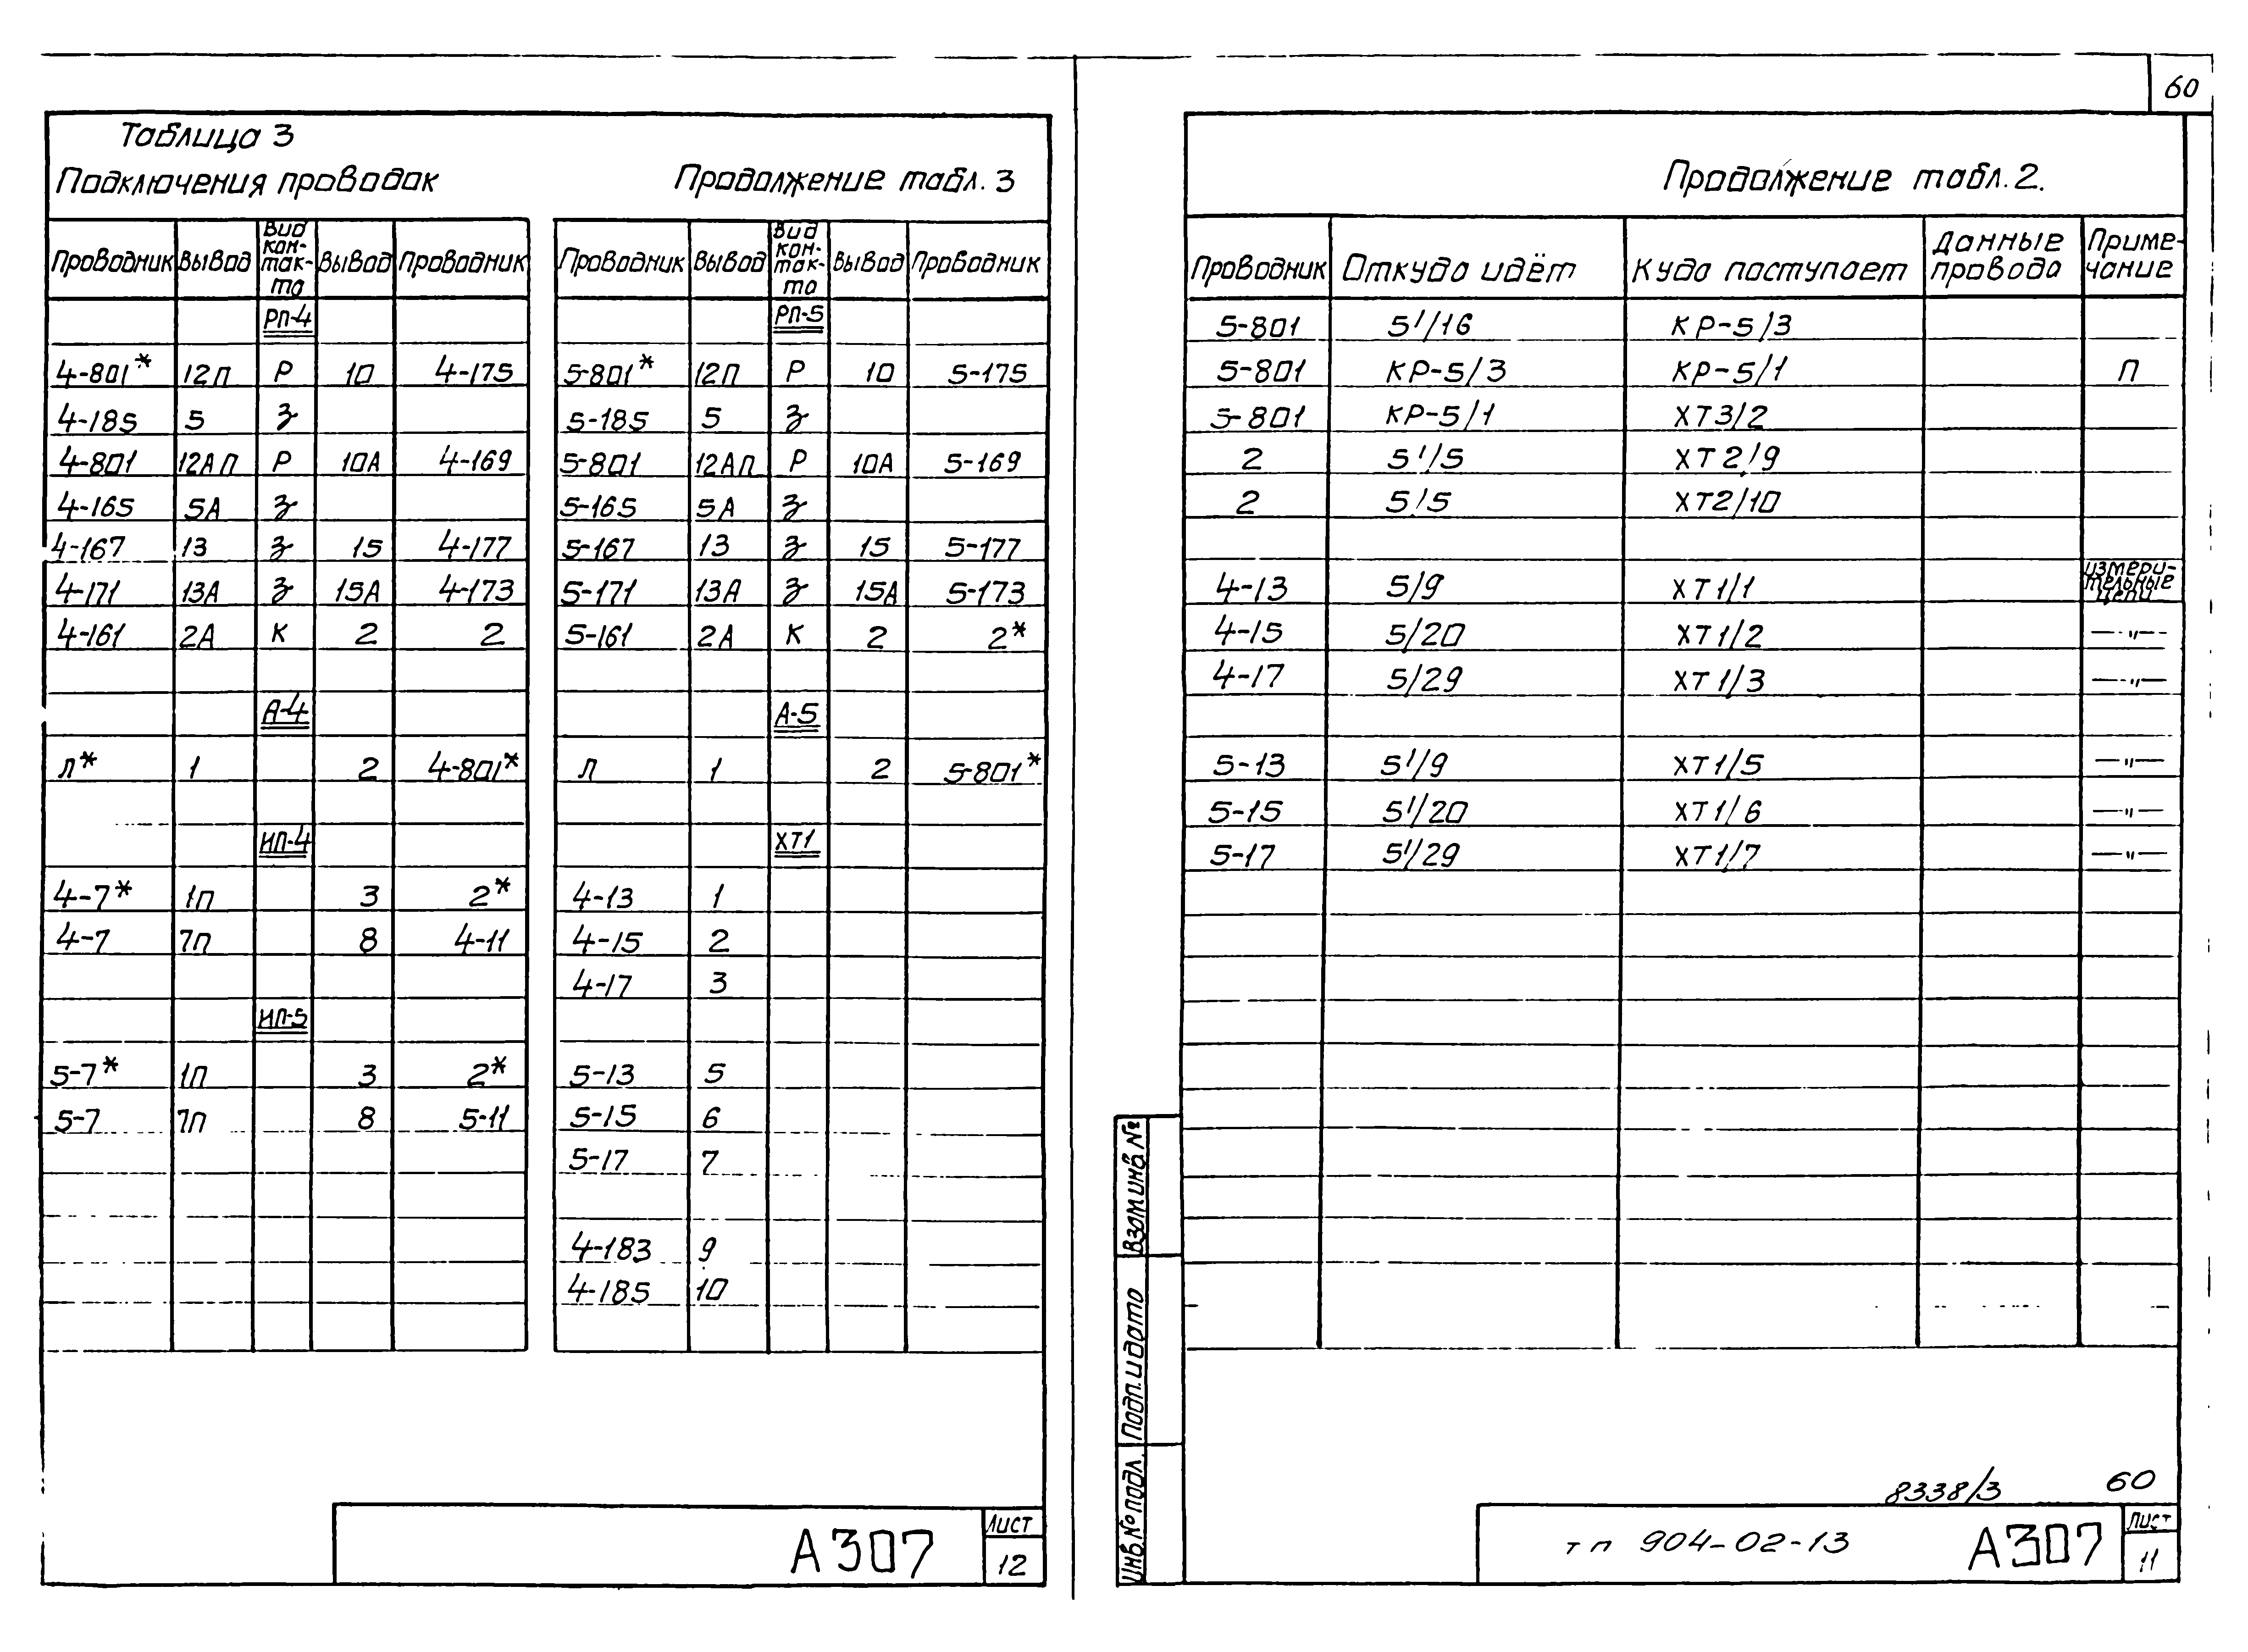 Таблица 3
Подключения проводок
Проводник Вывод Вид кон-так-та Вывод Проводник
РП-4
4-801* 12П Р 10 4-175
4-185 5 З
4-801 12АП Р 10А 4-169
4-165 5А З
4-167 13 З 15 4-177
4-171 13А З 15А 4-173
4-161 2А К 2 2
А-4
Л* 1 2 4-801*
ИП-4
4-7* 1П 3 2*
4-7 7П 8 4-11
ИП-5
5-7* 1П 3 2*
5-7 7П 8 5-11
Продолжение табл. 3
Проводник Вывод Вид кон-так-та Вывод Проводник
РП-5
5-801* 12П Р 10 5-175
5-185 5 З
5-801 12АП Р 10А 5-169
5-165 5А З
5-167 13 З 15 5-177
5-171 13А З 15А 5-173
5-161 2А К 2 2*
А-5
Л 1 2 5-801*
ХТ1
4-13 1
4-15 2
4-17 3
5-13 5
5-15 6
5-17 7
4-183 9
4-185 10
А307
Лист
12
60
Продолжение табл. 2.
Проводник Откуда идёт Куда поступает Данные провода Приме-чание
5-801 5'/16 КР-5/3
5-801 КР-5/3 КР-5/1 П
5-801 КР-5/1 ХТ3/2
2 5'/5 ХТ2/9
2 5/5 ХТ2/10
4-13 5/9 ХТ1/1 измери-тельные цепи
4-15 5/20 ХТ1/2 —"—
4-17 5/29 ХТ1/3 —"—
5-13 5'/9 ХТ1/5 —"—
5-15 5'/20 ХТ1/6 —"—
5-17 5'/29 ХТ1/7 —"—
Взам инв №
Подп. и дата
Инв. № подл.
8338/3 60
тп 904-02-13 А307
Лист
11